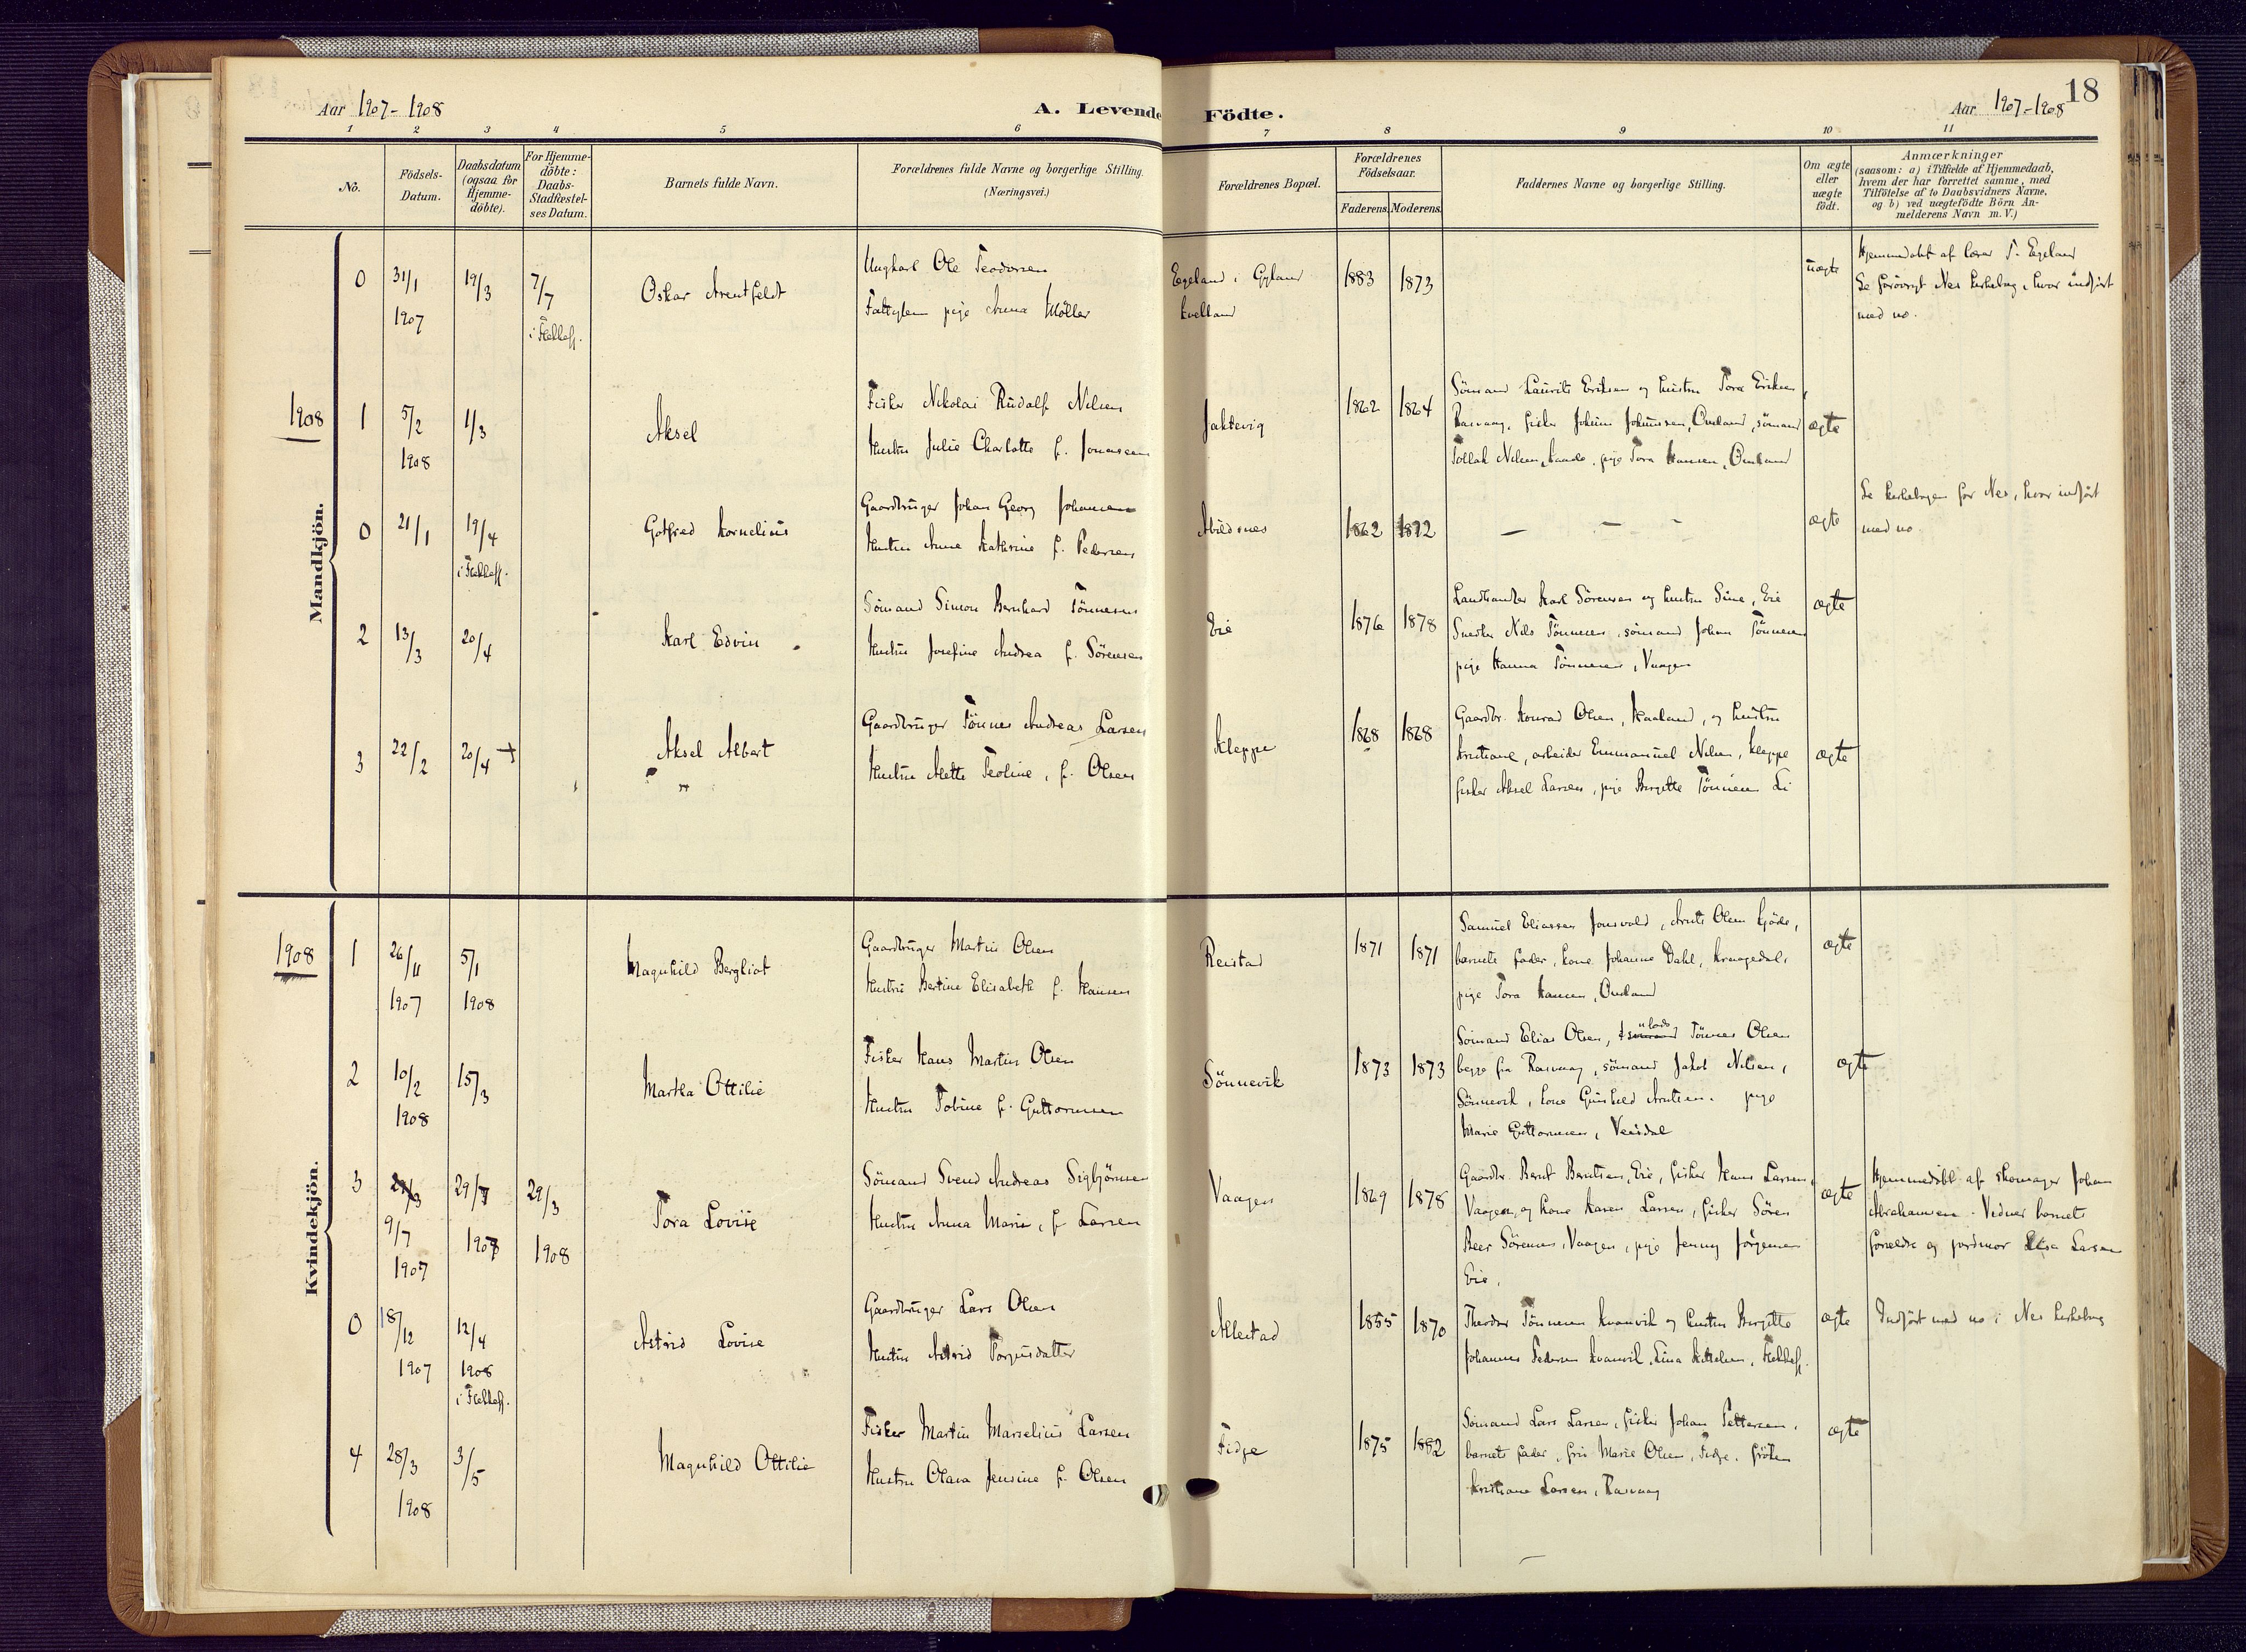 18
Aar 1907-1908
A. Levende Födte.
Aar 1907-1908
1 2 3 4 5 6 7 8 9 10 11
No.
Födsels-
Datum.
Daabsdatum
(ogsaa for
Hjemme-
döbte).
For Hjemme-
döbte:
Daabs-
Stadfæstel-
ses Datum.
Barnets fulde Navn.
Forældrenes fulde Navne og borgerlige Stilling.
(Næringsvei.)
Forældrenes Bopæl.
Forældrenes
Födselsaar.
Faderens. Moderens.
Faddernes Navne og borgerlige Stilling.
Om ægte
eller
uægte
födt.
Anmærkninger
(saasom: a) i Tilfælde af Hjemmedaab,
hvem der har forrettet samme, med
Tilföielse af to Daabsvidners Navne,
og b) ved uægtefödte Börn An-
melderens Navn m. V.)
Mandkjön.
0
31/1
1907
19/3
7/7
i Flekkefj.
Oskar Arentfeldt
Ungkarl Ole Teodorsen
pige Anna Möller
Egeland i Gyland
Kvelland
1883
1873
uægte
Hjemmedöbt af lærer T. Egeland
Se forövrigt Nes kirkebog, hvor indfört
med no.
1908
1
5/2
1908
1/3
Aksel
Fisker Nikolai Rudolf Nilsen
Hustru Julie Charlotte f. Jonassen
Jaktevig
1862
1864
Sömand Laurits Eriksen og hustru Tora Eriksen,
Rasvaag, fisker Johan Johannsen, Ousland, sömand
Tollak Nilsen, Kaade, pige Tora Hansen, Ousland
ægte
0
21/1
19/4
i Flekkefj.
Gotfred Kornelius
Gaardbruger Johan Georg Johansen
Hustru Anne Kathrine f. Pedersen
Abildsnes
1862
1872
— — -
ægte
Se kirkebogen for Nes, hvor indfört
med no
2
13/3
20/4
Karl Edvin
Sömand Simon Bernhard Tönnesen
Hustru Josefine Andrea f. Sörensen
Eie
1876
1878
Landhandler Karl Sörensen og hustru Sine, Eie
Snedker Nils Tönnesen, sömand Johan Tönnesen
pige Hanna Tönnesen, Vaagen
ægte
3
22/2
20/4 +
Aksel Albert
Gaardbruger Tönnes Andreas Larsen
Hustru Mette Teoline, f. Olsen
Kleppe
1868
1868
Gaardbr. Konrad Olsen, Kaaland, og hustru
Kristiane, arbeider Emmanuel Nilsen, Kleppe
fisker Aksel Larsen, pige Birgitte Tönnesen Li
ægte
Kvindekjön.
1908
1
26/11
1907
5/1
1908
Magnhild Bergliot
Gaardbruger Martin Olsen
Hustru Bertine Elisabeth f. Hansen
Reistad
1871
1871
Samuel Eliassen Jonsvold, Arnt Olsen Gjöde,
barnets fader, kone Johanne Dahl, Kraagedal,
pige Tora Hansen, Ousland
ægte
2
10/2
1908
15/3
Martha Ottilie
Fisker Hans Martin Olsen
Hustru Tobine f. Guttormsen
Sönnevik
1873
1873
Sömand Elias Olsen, Tönnes Olsen
begge fra Rasvaag, sömand Jakob Nilsen,
Sönnevik, kone Gunhild Arntsen. pige
Marie Guttormsen, Veisdal
ægte
3
9/7
1907
29/7
1907
29/3
1908
Tora Lovise
Sömand Svend Andreas Sigbjörnsen
Hustru Anna Marie, f. Larsen
Vaagen
1869
1878
Gaardbr. Bernt Berntsen, Eie, fisker Hans Larsen,
Vaagen, og kone Karen Larsen, fisker Sören
Beer Sörensen, Vaagen, pige Jenny Jörgensen
Eie.
ægte
Hjemmedöbt af skomager Johan
Abrahamsen. Vidner barnets
forældre og jordmor Elsa Larsen
0
18/12
1907
12/4
1908
i Flekkefj.
Astrid Lovise
Gaardbruger Lars Olsen
Hustru Astrid Torgusdatter
Allestad
1855
1870
Theodor Tönnesen Kvanvik og hustru Birgitte
Johannes Pedersen Kvanvik, Lina Mikkelsen, Flekkefj.
ægte
Indfört med no i Nes kirkebog
4
28/3
1908
3/5
Magnhild Ottilie
Fisker Martin Marselius Larsen
Hustru Olava Jensine f. Olsen
Fidje
1875
1882
Sömand Lars Larsen, fisker Johan Pettersen,
barnets fader, fru Marie Olsen, Fidje. fröken
Kristiane Larsen, Rasvaag
ægte